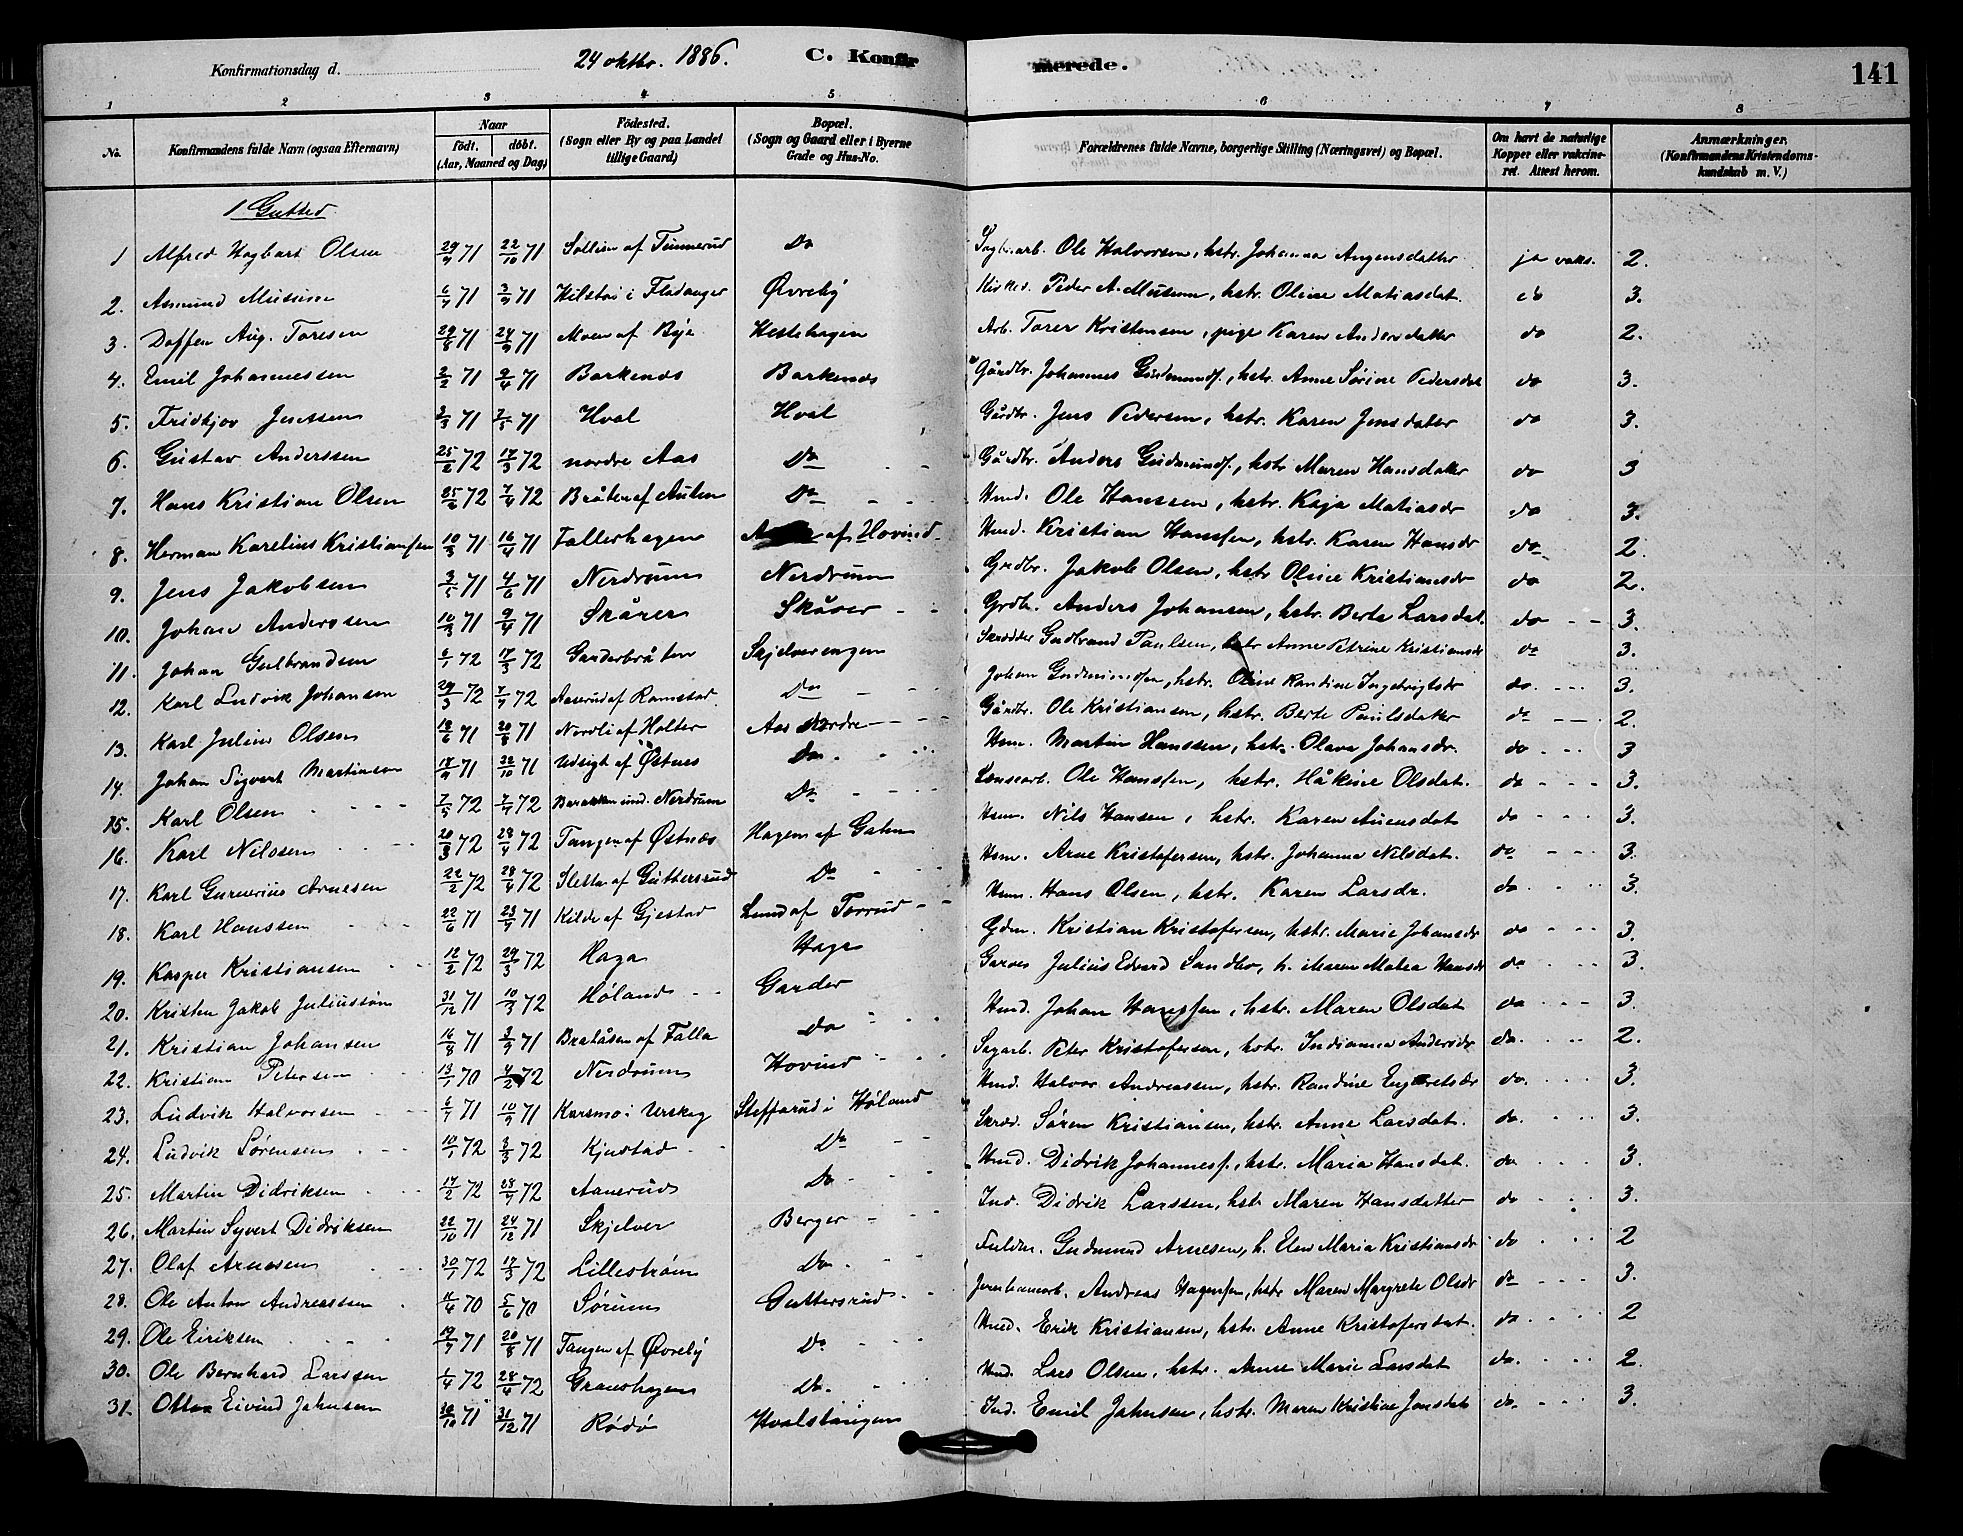 Konfirmationsdag d. 24 oktbr. 1886. C. Konfirmerede. 141
1 2 3 4 5 6 7 8
No. Konfirmandens fulde Navn (ogsaa Efternavn) Naar født. døbt. (Aar, Maaned og Dag) Fødested. (Sogn eller By og paa Landet tillige Gaard) Bopæl. (Sogn og Gaard eller i Byerne Gade og Hus-No. Forældrenes fulde Navne, borgerlige Stilling (Næringsvei) og Bopæl. Om havt de naturlige Kopper eller vakcineret. Attest herom. Anmærkninger. (Konfirmandens Kristendomskundskab m. V.)
1 Gutter
1 Alfred Hagbart Olsen 29/9 71 22/10 71 Sollien af Tinnerud Do Ole Halvorsen, hstr. Johanna ja vaks. 2.
2. Asmund Musum 6/7 71 3/9 71 i Fladanger Øvreby Peder A. Musum, hstr. Oline Matiasdat. do 3.
3. Doffen Aug. Toresen 29/8 71 24/9 71 Moen af Bye Hestehagen Arb. Torer Kristensen, pige Karen Andersdatter do 2.
4. Emil Johannessen 2/2 71 9/4 71 Barkenæs Barkenæs Gårdbr. Johannes Gudmunds., hstr. Anne Sørine Pedersdat do 3.
5. Fridtjov Jenssen 3/3 71 7/5 71 Hval Hval Gårdbr. Jens Pedersen, hstr. Karen Jensdatter do 3.
6. Gustav Anderssen 25/2 72 17/3 72 nordre Aas Do Gårdbr. Anders Gudmunds., hstr Maren Hansdatter do 3
7. Hans Kristian Olsen 25/2 72 7/4 72 Bråten af Auten Do Hmd. Ole Hanssen, hstr. Kaja Matiasdr do 3.
8. Herman Karelius Kristiansen 10/3 71 16/4 71 Fallerhagen af Hovind Hmd. Kristian Hanssen, hstr. Karen Hansdr do 2.
9. Jens Jakobsen 3/5 71 4/6 71 Nerdrum Nerdrum Grdbr. Jakob Olsen, hstr Oline Kristiansdr do 2.
10. Johan Anderssen 10/3 71 9/4 71 Skårer Skårer Grdb. Anders Johansen, hstr. Berte Larsdat. do 3.
11. Johan Gulbrandsen 6/1 72 17/3 72 Garderbråten Skjelverengen Skrædder Gudbrand Paulsen, hstr Anne Petrine Kristiansdr do 3.
12. Karl Ludvik Johansen 29/3 72 7/7 72 Aaserud af Ramstad Do Johan Gudmundsen, hstr. Oline Randine Ingebrigtsdr do 3.
13. Karl Julius Olsen 13/6 71 20/8 71 Nordli af Holter Aas Nordre Gårdbr. Ole Kristiansen, hstr. Berte Paulsdatter do 2.
14. Johan Sigvert Martinsen 18/9 71 22/10 71 Udsigt af Østnes Do Hsm. Martin Hanssen, hstr. Olava Johansdr. do 3
15. Karl Olsen 7/5 72 7/7 72 Nerdrum Do Lensearb. Ole Hanssen, hstr. Håkine Olsdat. do 3.
16. Karl Nilssen 20/3 72 28/4 72 Tangen af Østnæs Hagen af Gahn Hsm. Nils Hansen, hstr. Karen Auensdat do 3.
17. Karl Gunerius Arnesen 22/2 72 28/4 72 Sletta af Guttersrud Do Hsm. Arne Kristofersen, hstr. Johanna Nilsdat. do 3.
18. Karl Hanssen 22/6 71 23/7 71 Kilde af Gjestad Lund af Torrud Hsm. Hans Olsen, hstr. Karen Larsdr. do 3.
19. Kasper Kristiansen 12/2 72 29/3 72 Haga Haga Gdm. Kristian Kristofersen, hstr. Marie Johansdr do 3.
20. Kristen Jakob Juliussøn 31/12 71 10/3 72 Høland Garder Garver Julius Edvard Sandbo, h. Maren Matea Hansdr do 3.
21. Kristian Johansen 16/8 71 3/9 71 Bratåsen af Falla Do Hmd. Johan Hanssen, hstr. Maren Olsdat do 3
22. Kristian Petersen 13/1 70 4/2 72 Nerdrum Hovind Sagarb. Peter Kristofersen, hstr. Indianna Andersdr do. 2.
23. Ludvik Halvorsen 6/7 71 10/9 71 Karsmo i Urskog Steffarud i Høland Hmd. Halvor Andreassen, hstr. Randine do. 3.
24. Ludvik Sørensen 10/1 72 3/3 72 Kjustad Do Skræd. Søren Kristiansen, hstr. Anne Larsdat. do. 3.
25. Martin Didriksen 17/2 72 28/7 72 Aanerud Do Hmd. Didrik Johanness., hstr. Maria Hansdat. do 3.
26. Martin Syvert Didriksen 22/10 71 24/12 71 Skjelver Berger Ind. Didrik Larssen, hstr Maren Hansdatter do 3.
27. Olaf Arnesen 30/1 72 17/3 72 Lillestrøm Do Gudmund Arnesen, h. Elen Maria Kristiansdr do 2
28. Ole Anton Andreassen 11/4 70 5/6 70 Sørum Guttersrud Jernbanearb. Andreas Hagensen, hstr Maren Margrete Olsdr do 3.
29. Ole Eiriksen 19/7 71 20/8 71 Tangen af Øvreby Do Hmd. Erik Kristiansen, hstr. Anne Kristofersdat. do 2
30. Ole Bernhard Larssen 1/4 72 28/4 72 Granshagen Do. Hmd. Lars Olsen, hstr. Anne Marie Larsdat do. 2.
31. Otto Eivind Jahnsen 30/10 71 31/12 71 Rødø Hvalstangen Ind. Emil Jahnsen, hstr. Maren Kristine Jonsdat do. 3.